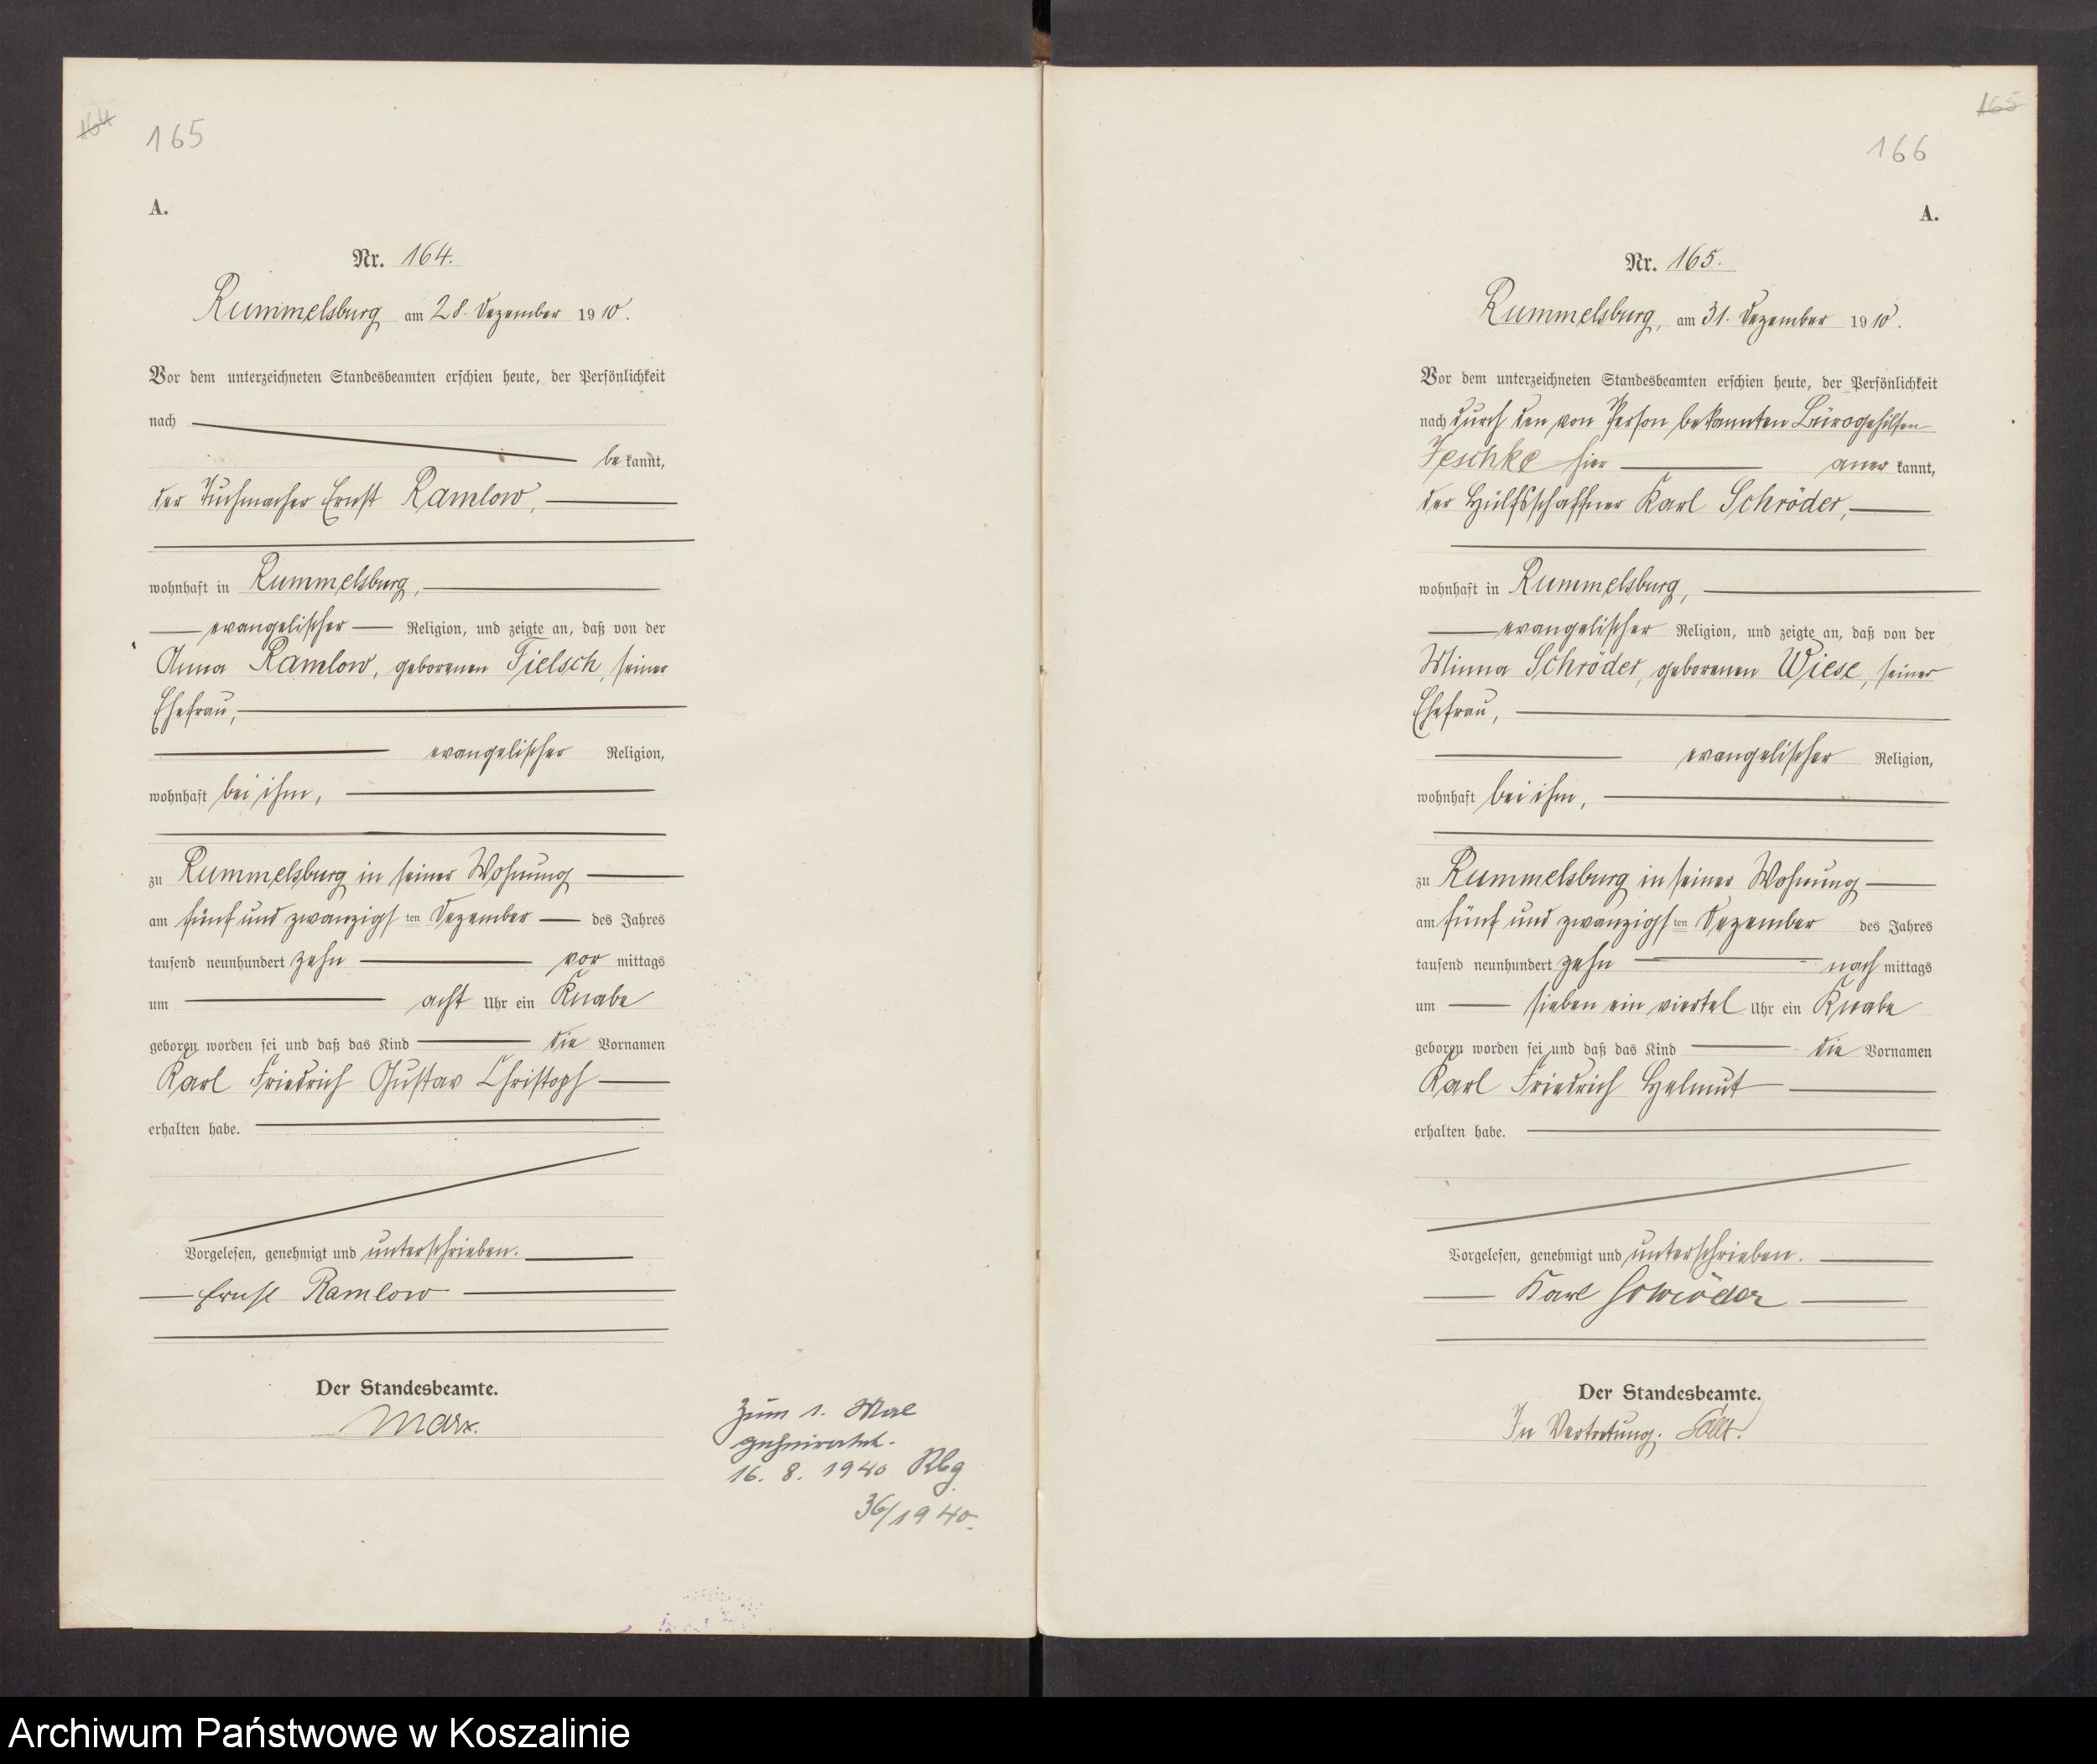 164
165
A.
Nr. 164.
Rummelsburg am 28. Dezember 1910.
Vor dem unterzeichneten Standesbeamten erschien heute, der Persönlichkeit
nach
be kannt,
der Tuchmacher Ernst Ramlow,
wohnhaft in Rummelsburg,
evangelischer Religion, und zeigte an, daß von der
Anna Ramlow, geborenen Fielsch, seiner
Ehefrau,
evangelischer Religion,
wohnhaft bei ihm,
zu Rummelsburg in seiner Wohnung
am fünf und zwanzigs ten Dezember des Jahres
tausend neunhundert zehn vor mittags
um acht Uhr ein Knabe
geboren worden sei und daß das Kind die Vornamen
Karl Friedrich Gustav Christoph
erhalten habe.
Vorgelesen, genehmigt und unterschrieben.
Ernst Ramlow
Der Standesbeamte.
Marx.
Zum 1. Mal
geheiratet.
16. 8. 1940 Rbg
36/1940.
165
166
A.
Nr. 165.
Rummelsburg, am 31. Dezember 1910.
Vor dem unterzeichneten Standesbeamten erschien heute, der Persönlichkeit
nach durch den von Person bekannten Bürogehilfen
Jeschke hier aner kannt,
der Hülfsschaffner Karl Schröder,
wohnhaft in Rummelsburg,
evangelischer Religion, und zeigte an, daß von der
Minna Schröder, geborenen Wiese, seiner
Ehefrau,
evangelischer Religion,
wohnhaft bei ihm,
zu Rummelsburg in seiner Wohnung
am fünf und zwanzigs ten Dezember des Jahres
tausend neunhundert zehn nach mittags
um sieben ein viertel Uhr ein Knabe
geboren worden sei und daß das Kind die Vornamen
Karl Friedrich Helmut
erhalten habe.
Vorgelesen, genehmigt und unterschrieben.
Karl Schröder
Der Standesbeamte.
In Vertretung:
Archiwum Państwowe w Koszalinie